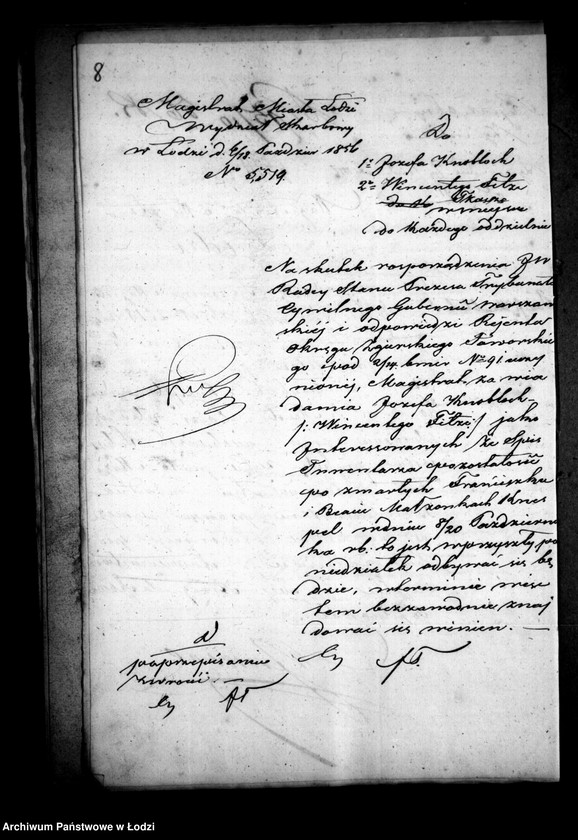 8
Magistrat Miasta Łodzi
Wydział Skarbowy
w Łodzi d. 6/18 Paździer 1856
No 5,519
Do
1o Józefa Knobloch
2o Wincentego Titze
w miejscu
do każdego oddzielnie
Na skutek rosporządzenia JW
Radcy Stanu Prezesa Trybunału
Cywilnego Gubernii Warszaw
skiéj i odpowiedzi Rejenta
Okręgu Zgierskiego Jaworskie
go pod 2/14 bmir No 91 uczy
nionéj, Magistrat, za wia
damia Józefa Knobloch
/: Wincentego Titze :/ jako
Interessowanych że Spis
Inwentarza pozostałości
po zmarłych Franciszku
i Beacie Małżonkach Knes
pel w dniu 8/20 Październi
ka rb. to jest w przyszły po
niedziałek odbywać się bę
dzie, w terminie więc
tem bezzawodnie znaj
dować się winien. —
po przepisaniu
zwrócić. —
Archiwum Państwowe w Łodzi